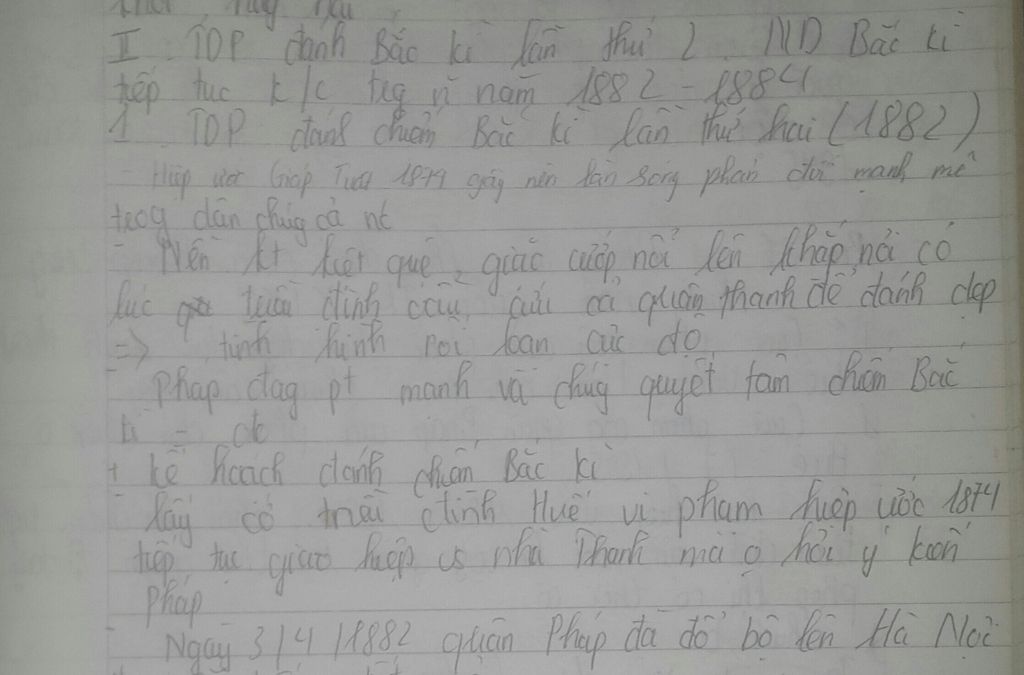 II TDP đánh Bắc kì lần thứ 2. ND Bắc kì
tiếp tục k/c trg ~ năm 1882 - 1884
1 TDP đánh chiếm Bắc kì lần thứ hai (1882)
- Hiệp ước Giáp Tuất 1874 gây nên làn sóng phản đối mạnh mẽ
trog dân chúg cả nc
- Nền kt kiệt quệ, giặc cướp nổi lên khắp nơi có
lúc triều đình cầu cứu cả quân thanh để đánh dẹp
=> tình hình rối loạn cực độ
- Pháp đag pt mạnh và chúg quyết tâm chiếm Bắc
kì =
+ kế hoạch đánh chiếm Bắc kì
- lấy cớ triều đình Huế vi phạm hiệp ước 1874
tiếp tục giao thiệp vs nhà Thanh mà o hỏi ý kiến
Pháp
- Ngày 3/4/1882 quân Pháp đã đổ bộ lên Hà Nội